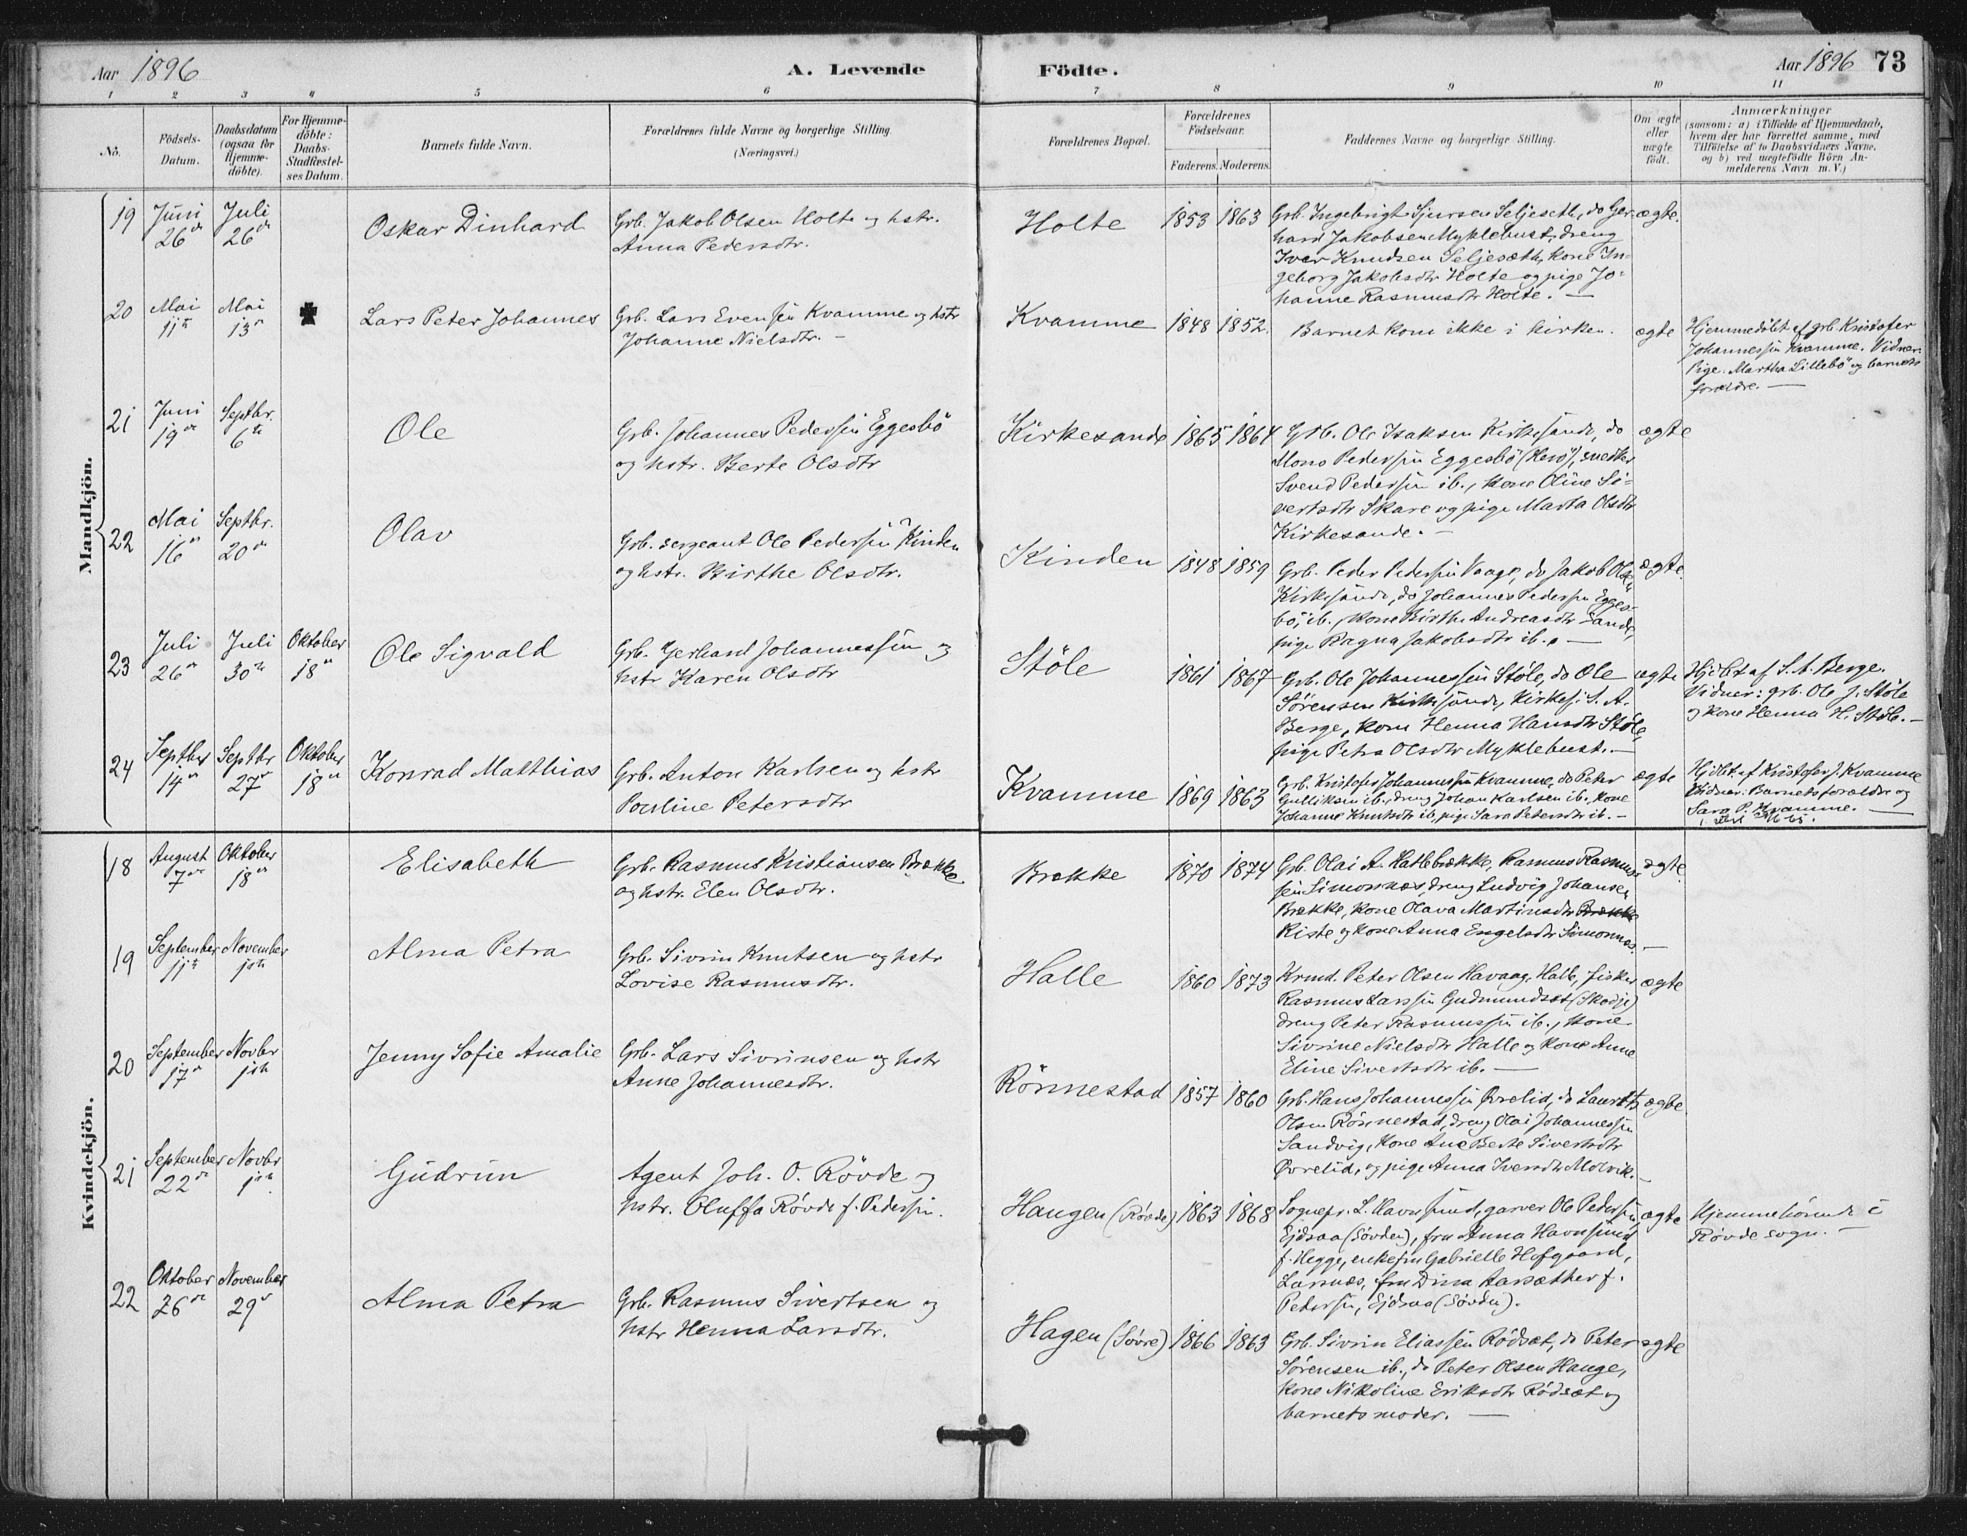 Aar 1896
A. Levende
Födte.
Aar 1896 73
1 2 3 4 5 6 7 8 9 10 11
No.
Födsels-
Datum.
Daabsdatum
(ogsaa for
Hjemme-
döbte).
For Hjemme-
döbte:
Daabs-
Stadfæstel-
ses Datum.
Barnets fulde Navn.
Forældrenes fulde Navne og borgerlige Stilling.
(Næringsvei.)
Forældrenes Bopæl.
Forældrenes
Födselsaar.
Faderens. Moderens.
Faddernes Navne og borgerlige Stilling.
Om ægte
eller
uægte
födt.
Anmærkninger
(saasom: a) i Tilfælde af Hjemmedaab,
hvem der har forrettet samme, med
Tilföielse af to Daabsvidners Navne,
og b) ved uægtefödte Börn An-
melderens Navn m. V.)
Mandkjön.
19
Juni
26de
Juli
26de
Oskar Dinhard
Grb. Jakob Olsen Holte og hstr.
Anna Pedersdtr.
Holte
1853 1863
Grb. Ingebrigt Sjursen Seljeseth, do Ger-
hard Jakobsen Myklebust, dreng
Iver Knudsen Seljesæth, kone In-
geborg Jakobsdtr Holte og pige Jo-
hanne Rasmusdtr Holte. —
ægte.
20
Mai
11te
Mai
13de
Lars Peter Johannes
Grb. Lars Evensen Kvamme og hstr
Johanne Nielsdtr. —
Kvamme
1848 1852.
Barnet kom ikke i kirken.
ægte
Hjemmedöbt af grb. Kristofer
Johannessen Kvamme. Vidner:
Pige Martha Lillebö og barnets
forældre. —
21
Juni
19de
Septbr.
6te
Ole
Grb. Johannes Pedersen Eggesbö
og hstr. Berte Olsdtr
Kirkesande
1865 1864
Grb. Ole Isaksen Kirkesande, do
Mons Pedersen Eggesbö (Herö), snedker
Svend Pedersen ib., kone Oline Si-
vertsdtr Skare og pige Marta Olsdtr
Kirkesande. —
ægte
22
Mai
16de
Septbr.
20de
Olav
Grb. sergeant Ole Pedersen Kinden
og hstr. Birthe Olsdtr.
Kinden
1848 1859
Grb. Peder Pedersen Vaage, do Jakob Olsen
Kirkesande, do Johannes Pedersen Egges-
bö, ib., kone Birthe Andreasdtr Sande,
pige Ragna Jakobsdtr ib. —
ægte.
23
Juli
26de
Juli
30te
Oktober
18de
Ole Sigvald
Grb. Gerhard Johannessen og
hstr Karen Olsdtr
Støle
1861 1867
Grb. Ole Johannessen Støle, do Ole
Sörensen Kirkesande, Kirkes. S. A.
Berge, kone Henna Hansdtr Støle,
pige Petra Olsdtr Myklebust. —
ægte
Hjdöbt af S. A. Berge.
Vidner: grb. Ole J. Støle
og kone Henna H. Støle. —
24
Septbr
14de
Septbr
27de
Oktober
18de
Konrad Matthias
Grb. Anton Karlsen og hstr
Pouline Petersdtr
Kvamme
1869 1863
Grb. Kristofer Johannessen Kvamme, do Peter
Gulliksen ib., dreng Johan Karlsen ib., kone
Johanne Knutsdtr ib, pige Sara Petersdtr ib. —
ægte
Hjdöbt af Kristofer J. Kvamme
Vidner: Barnets forældre og
Sara P. Kvamme. —
Kvindekjön.
18
August
7de
Oktober
18de
Elisabeth
Grb. Rasmus Kristiansen Brekke
og hstr. Elen Olsdtr.
Brekke
1870 1874
Grb. Olai A. Hatlebrekke, Rasmus Rasmus-
sen Simonnes, dreng Ludvig Johansen
Brekke, kone Olava Martinsdtr Brekke
Riste og kone Anna Engelsdtr Simonnes. —
ægte.
19
September
11te
November
1ste
Alma Petra
Grb. Sivrin Knutsen og hstr
Lovise Rasmusdtr.
Halle
1860 1873
Krmd. Peter Olsen Havaag, Halle, fisker
Rasmus Larssen Gudmundset (Skodje)
dreng Peter Rasmussen ib., kone
Sivrine Nielsdtr Halle og kone Anne
Eline Sivertsdtr ib. —
ægte
20
September
17de
Novbr
1ste
Jenny Sofie Amalie
Grb. Lars Sivrinsen og hstr
Anne Johannesdtr.
Rönnestad
1857 1860
Grb. Hans Johannessen Øvrelid, do Lauritz
Olsen Rönnestad, dreng Olai Johannessen
Sandvig, kone Ane Berte Sivertsdtr
Øvrelid, og pige Anna Iversdtr Molvik. —
ægte.
21
September
22de
Novbr
1ste
Gudrun
Agent Joh. O. Rövde og
hstr. Oluffa Rövde f. Pedersen.
Haugen (Rövde)
1863 1868
Sognepr. L. Havnsund, garver Ole Pedersen
Ejdsaa (Sövden), fru Anna Havnsund
f. Hegge, enkefru Gabrielle Hofgaard,
Larsnes, fru Dina Aarsæther f.
Pedersen, Ejdsaa (Sövden).
ægte
Hjemmehörende i
Rövde sogn. —
22
Oktober
26de
November
29de
Alma Petra
Grb. Rasmus Sivertsen og
hstr Henna Larsdtr.
Hagen (Sövre)
1866 1863
Grb. Sivrin Eliassen Rödset, do Peter
Sörensen ib., do Peter Olsen Hauge,
kone Nikoline Eriksdtr Rödset og
barnets moder. —
ægte